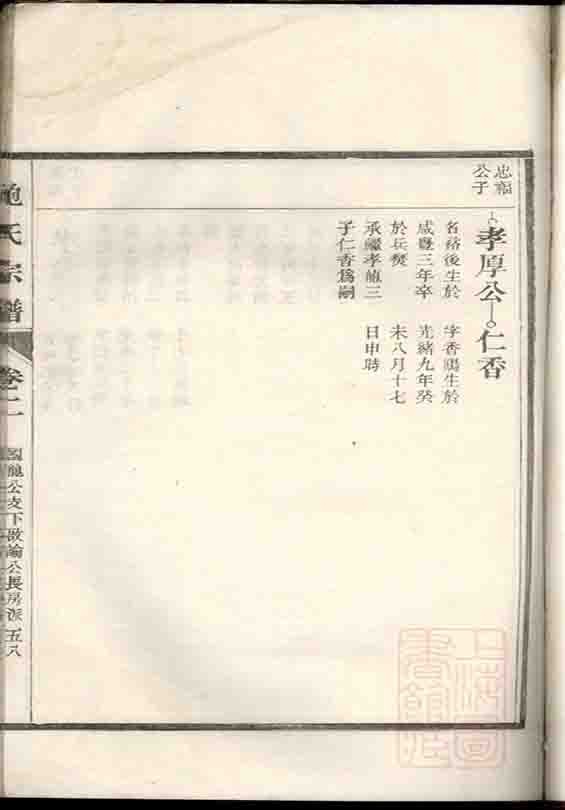 忠福
公子
孝厚公 仁香
名 後生於
咸豐三年卒
於兵燹
承繼孝 三
子仁香爲嗣
字香 生於
光緒九年癸
未八月十七
日申時
氏宗譜
卷二
公支下 公長房派 五八
上海圖
書館藏